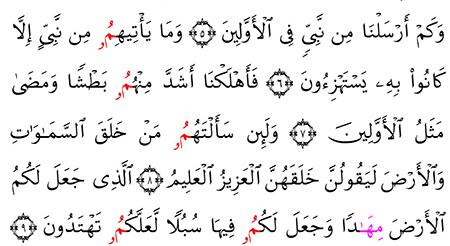 وَكَمْ أَرْسَلْنَا مِن نَّبِيٍّ فِى ٱلْأَوَّلِينَ ﴿٥﴾ وَمَا يَأْتِيهِمُۥ مِن نَّبِيٍّ إِلَّا
كَانُوا۟ بِهِۦ يَسْتَهْزِءُونَ ﴿٦﴾ فَأَهْلَكْنَا أَشَدَّ مِنْهُمُۥ بَطْشًا وَمَضَىٰ
مَثَلُ ٱلْأَوَّلِينَ ﴿٧﴾ وَلَئِن سَأَلْتَهُمُۥ مَنْ خَلَقَ ٱلسَّمَـٰوَٰتِ
وَٱلْأَرْضَ لَيَقُولُنَّ خَلَقَهُنَّ ٱلْعَزِيزُ ٱلْعَلِيمُ ﴿٨﴾ ٱلَّذِى جَعَلَ لَكُمُ
ٱلْأَرْضَ مِهَـٰدًا وَجَعَلَ لَكُمُۥ فِيهَا سُبُلًا لَّعَلَّكُمُۥ تَهْتَدُونَ ﴿٩﴾